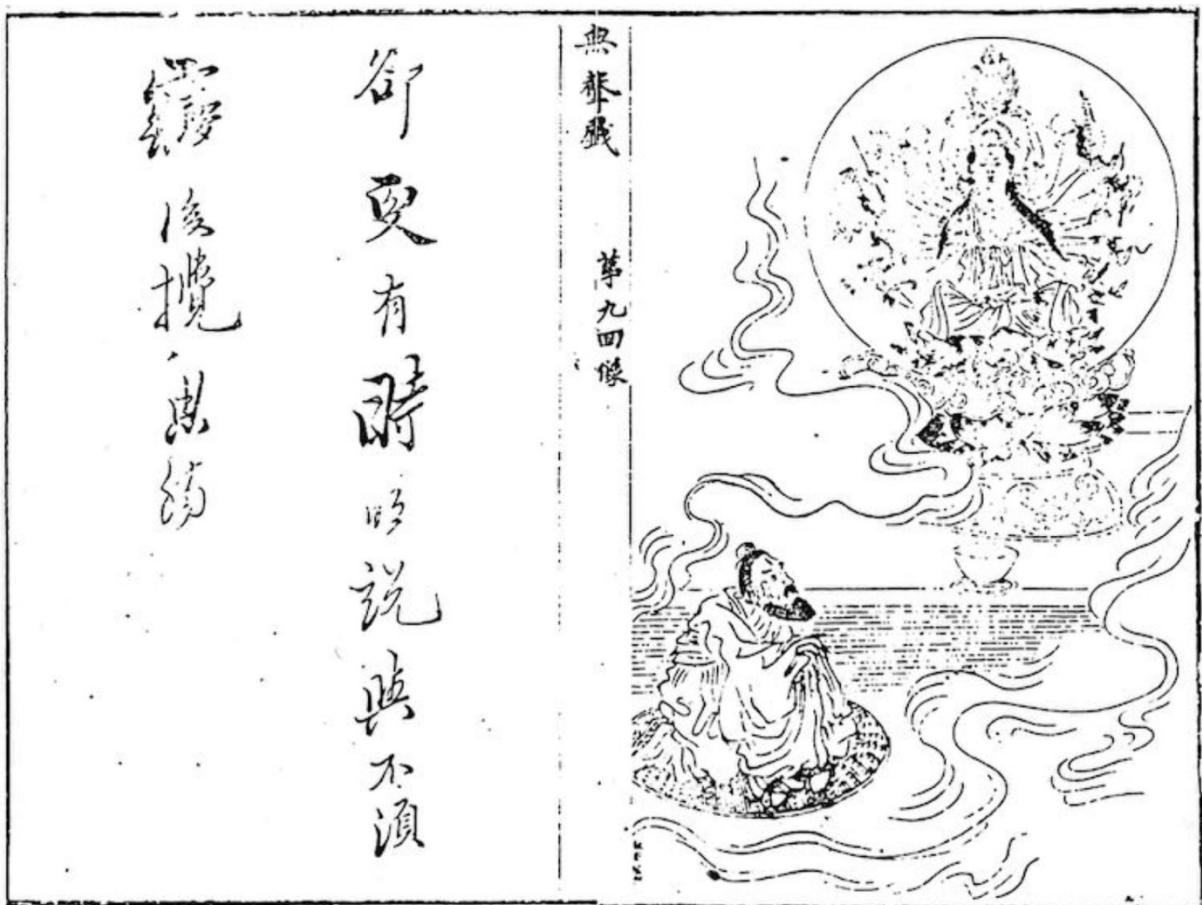 無聲戲 第九回像
卻更有時明說與不須
後攪腸